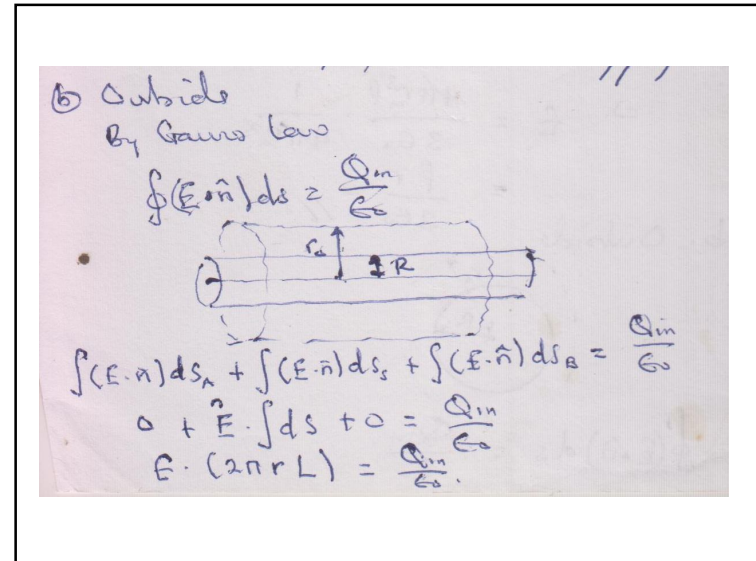 ⑥ Outside
By Gauss law
∮(E·n̂)ds = Qin/ε₀
r
R
∫(E·n)dsA + ∫(E·n̂)dsS + ∫(E·n̂)dsB = Qin/ε₀
0 + E·∫ds + 0 = Qin/ε₀
E·(2πrL) = Qin/ε₀.